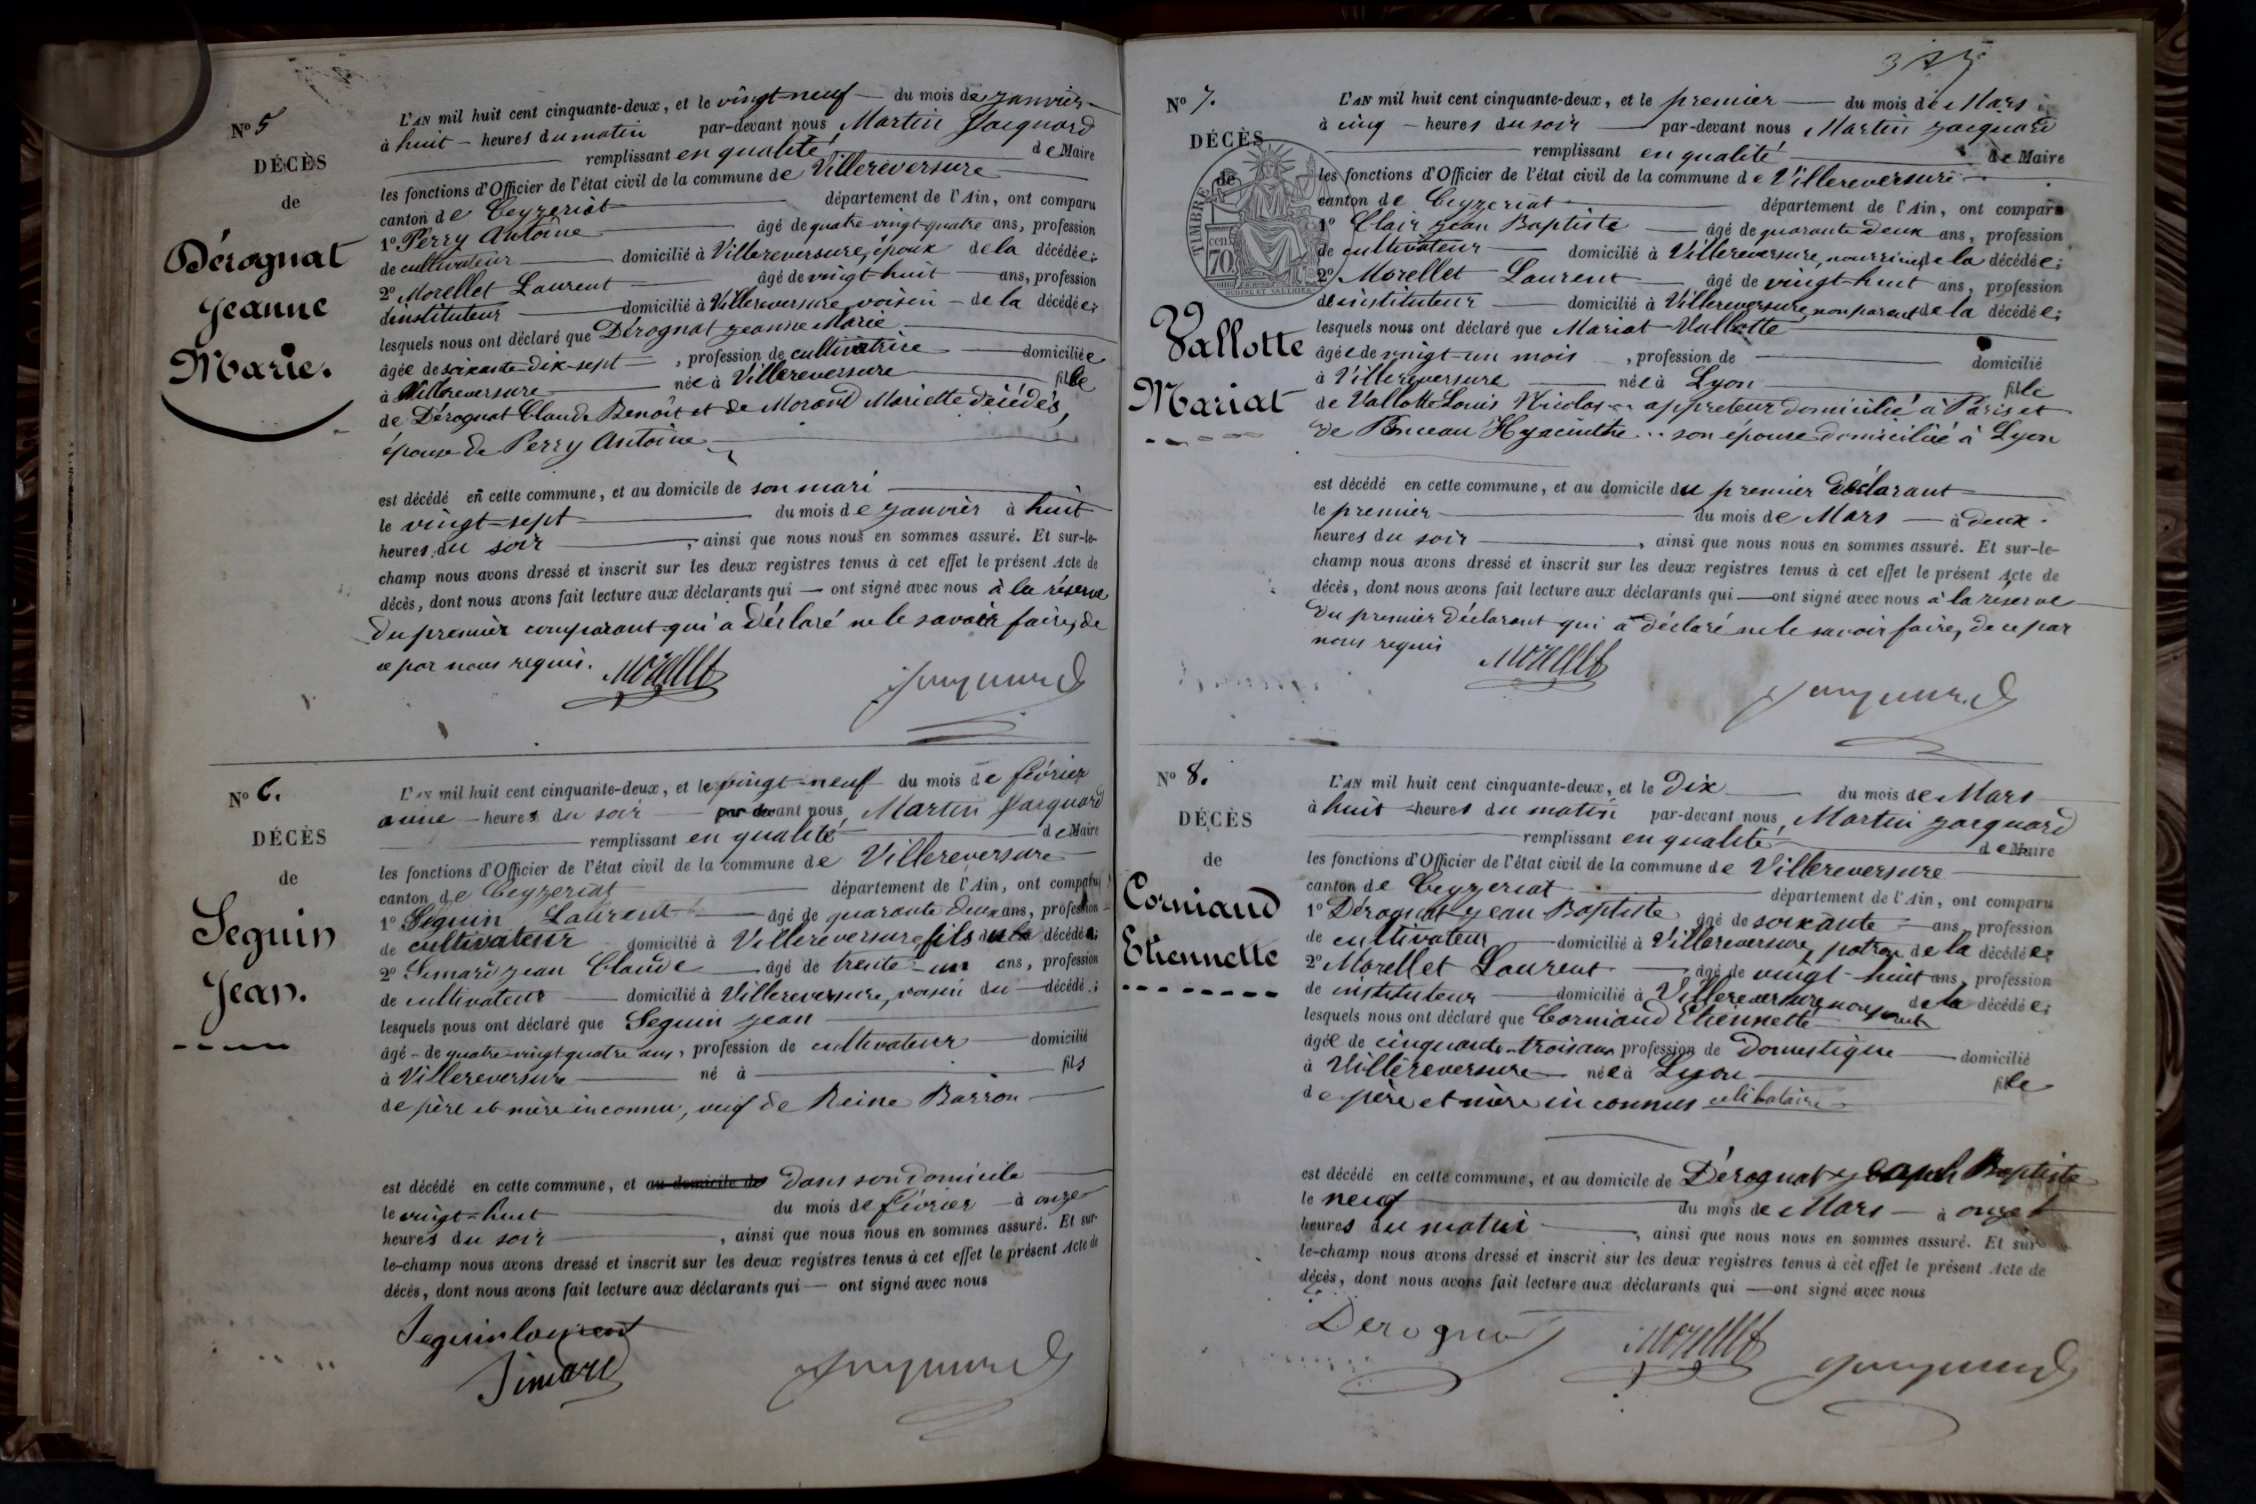 N° 5
DÉCÈS
de
Dérognat
Jeanne
Marie.
L'AN mil huit cent cinquante-deux, et le vingt-neuf du mois de janvier
à huit heures du matin par-devant nous Martin Jacquard
remplissant en qualité de Maire
les fonctions d'Officier de l'état civil de la commune de Villereversure
canton de Ceyzeriat département de l'Ain, ont comparu
1° Perry Antoine âgé de quatre-vingt-quatre ans, profession
de cultivateur domicilié à Villereversure, époux de la décédée;
2° Morellet Laurent âgé de vingt-huit ans, profession
d'instituteur domicilié à Villereversure voisin de la décédée;
lesquels nous ont déclaré que Dérognat Jeanne Marie
âgée de soixante-dix-sept, profession de cultivatrice domiciliée
à Villereversure née à Villereversure fille
de Dérognat Claude Benoît et de Morand Mariette décédés,
épouse de Perry Antoine
est décédé en cette commune, et au domicile de son mari
le vingt-sept du mois de janvier à huit
heures du soir, ainsi que nous nous en sommes assuré. Et sur-le-
champ nous avons dressé et inscrit sur les deux registres tenus à cet effet le présent Acte de
décès, dont nous avons fait lecture aux déclarants qui — ont signé avec nous à la réserve
du premier comparant qui a déclaré ne le savoir faire, de
ce par nous requis. Morellet Jacquard
N° 6.
DÉCÈS
de
Seguin
Jean.
L'AN mil huit cent cinquante-deux, et le vingt-neuf du mois de février
à une heures du soir par-devant nous Martin Jacquard
remplissant en qualité de Maire
les fonctions d'Officier de l'état civil de la commune de Villereversure
canton de Ceyzeriat département de l'Ain, ont comparu
1° Seguin Laurent âgé de quarante deux ans, profession
de cultivateur domicilié à Villereversure fils du décédé;
2° Simard Jean Claude âgé de trente-un ans, profession
de cultivateur domicilié à Villereversure, voisin du décédé;
lesquels nous ont déclaré que Seguin Jean
âgé de quatre-vingt-quatre ans, profession de cultivateur domicilié
à Villereversure né à fils
de père et mère inconnu, veuf de Reine Barron
est décédé en cette commune, et au domicile de dans son domicile
le vingt-huit du mois de février à onze
heures du soir, ainsi que nous nous en sommes assuré. Et sur-
le-champ nous avons dressé et inscrit sur les deux registres tenus à cet effet le présent Acte de
décès, dont nous avons fait lecture aux déclarants qui — ont signé avec nous
Seguin Laurent
Simard Jacquard
N° 7.
DÉCÈS
de
TIMBRE
cen
70
Vallotte
Mariat
L'AN mil huit cent cinquante-deux, et le premier du mois de Mars
à cinq heures du soir par-devant nous Martin Jacquard
remplissant en qualité de Maire
les fonctions d'Officier de l'état civil de la commune de Villereversure
canton de Ceyzeriat département de l'Ain, ont comparu
1° Clair Jean Baptiste âgé de quarante deux ans, profession
de cultivateur domicilié à Villereversure, de la décédée;
2° Morellet Laurent âgé de vingt-huit ans, profession
d'instituteur domicilié à Villereversure non parent de la décédée;
lesquels nous ont déclaré que Mariat Vallotte
âgée de vingt-un mois, profession de domicilié
à Villereversure née à Lyon fille
de Vallotte Louis Nicolas appreteur domicilié à Paris et
de Hyacinthe son épouse domiciliée à Lyon
est décédé en cette commune, et au domicile du premier déclarant
le premier du mois de Mars à deux
heures du soir, ainsi que nous nous en sommes assuré. Et sur-le-
champ nous avons dressé et inscrit sur les deux registres tenus à cet effet le présent Acte de
décès, dont nous avons fait lecture aux déclarants qui — ont signé avec nous à la réserve
du premier déclarant qui a déclaré ne le savoir faire, de ce par
nous requis Morellet Jacquard
N° 8.
DÉCÈS
de
Corniaud
Etiennette
L'AN mil huit cent cinquante-deux, et le dix du mois de Mars
à huit heures du matin par-devant nous Martin Jacquard
remplissant en qualité de Maire
les fonctions d'Officier de l'état civil de la commune de Villereversure
canton de Ceyzeriat département de l'Ain, ont comparu
1° Dérognat Jean Baptiste âgé de soixante ans, profession
de cultivateur domicilié à Villereversure, patron de la décédée;
2° Morellet Laurent âgé de vingt-huit ans, profession
de instituteur domicilié à Villereversure non parent de la décédée;
lesquels nous ont déclaré que Corniaud Etiennette
âgée de cinquante-trois ans profession de Domestique domicilié
à Villereversure née à Lyon fille
de père et mère inconnus célibataire
est décédé en cette commune, et au domicile de Dérognat Baptiste
le neuf du mois de Mars à onze
heures du matin, ainsi que nous nous en sommes assuré. Et sur-
le-champ nous avons dressé et inscrit sur les deux registres tenus à cet effet le présent Acte de
décès, dont nous avons fait lecture aux déclarants qui — ont signé avec nous
Derognat Morellet Jacquard